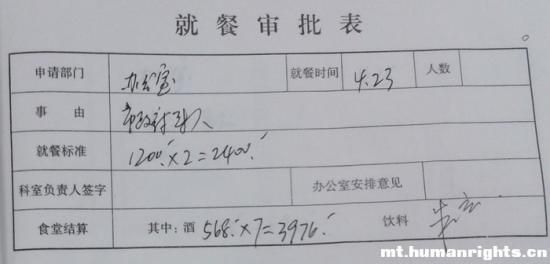 就餐审批表
申请部门 办公室 就餐时间 4.23 人数
事由
就餐标准 1200×2=2400
科室负责人签字 办公室安排意见
食堂结算 其中:酒 568×7=3976 饮料
mt.humanrights.cn